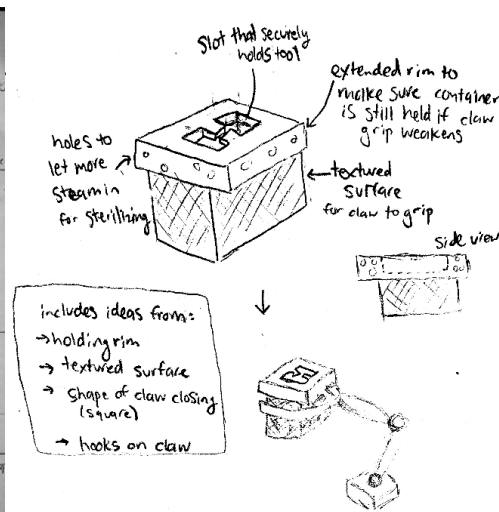 slot that securely
holds tool
extended rim to
make sure container
is still held if claw
grip weakens
holes to
let more
steam in
for sterilizing
textured
surface
for claw to grip
side view
includes ideas from:
→ holding rim
→ textured surface
→ shape of claw closing
(square)
→ hooks on claw